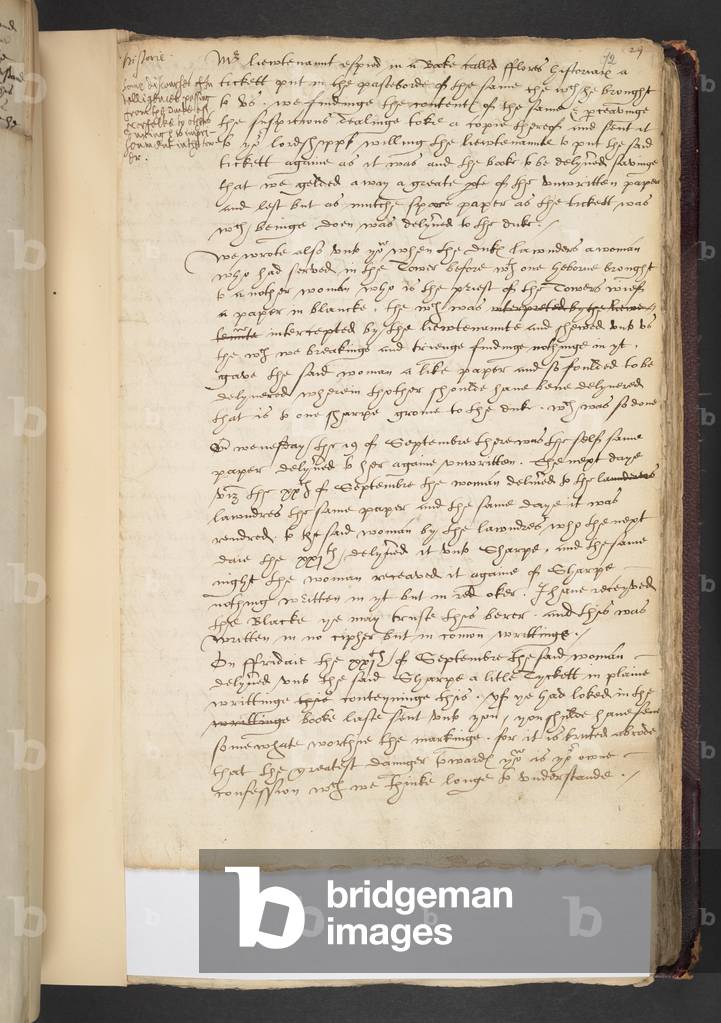 29
72
Historie.
Some discourses of in
telligences passing
from the Duke of
Norfolke to others
Mr Liewtenannt espied in a Booke called fflores Historiarū a
tickett put in the pasteborde of the same the wch he brought
to vs. we findinge the content of the same & pceavinge
the suspitious dealinge toke a copie thereof and sent it
to yor lordshipps willing the liewtenannte to put the said
tickett againe as it was and the booke to be delyv'ed savinge
that we gelded away a greate pte of the vnwritten paper
and left but as mutche spare paper as the tickett was
wch beinge doen was delyv'ed to the duke./
We wrote also vnto you when the Dukes lawnders a woman
who had served in the Tower before wth one Heborne brought
to another woman who is the priest of the Towers wief
a paper in blancke, the wch was interpreted by the liewe
tennte intercepted by the liewtenannte and shewed vnto vs
the wch we breakinge and trienge findinge nothinge in yt,
gave the said woman a like paper and so foulded to be
delyuered wherein thother shoulde haue bene delyuered
that is to one Sharpe grome to the duke. wch was so done
On wenesday the 19 of Septembre there was the self same
paper delyv'ed to her againe vnwritten. The next daye
viz the xxth of Septembre the woman deliu'ed to the laundres
lawndres the same paper and the same daye it was
rendred to the said woman by the lawndres, who the next
daie the xxjth delyv'ed it vnto Sharpe, and the same
night the woman receaved it againe of Sharpe
nothing written in yt but in red oker. I haue receyved
the Blacke ye may truste this berer. and this was
written in no cipher but in comon writtinge./
On ffridaie the xxjth of Septembre the said woman
delyv'ed vnto the said Sharpe a litle Tyckett in plaine
writtinge this conteyninge this. yf ye had loked in the
writtinge booke laste sent vnto you, you shulde haue sene
somewhate worthie the markinge. for it is bruted abrode
that the greatest daunger towardes you is yor owne
confession wch we thinke longe to vnderstande./
bridgeman
images